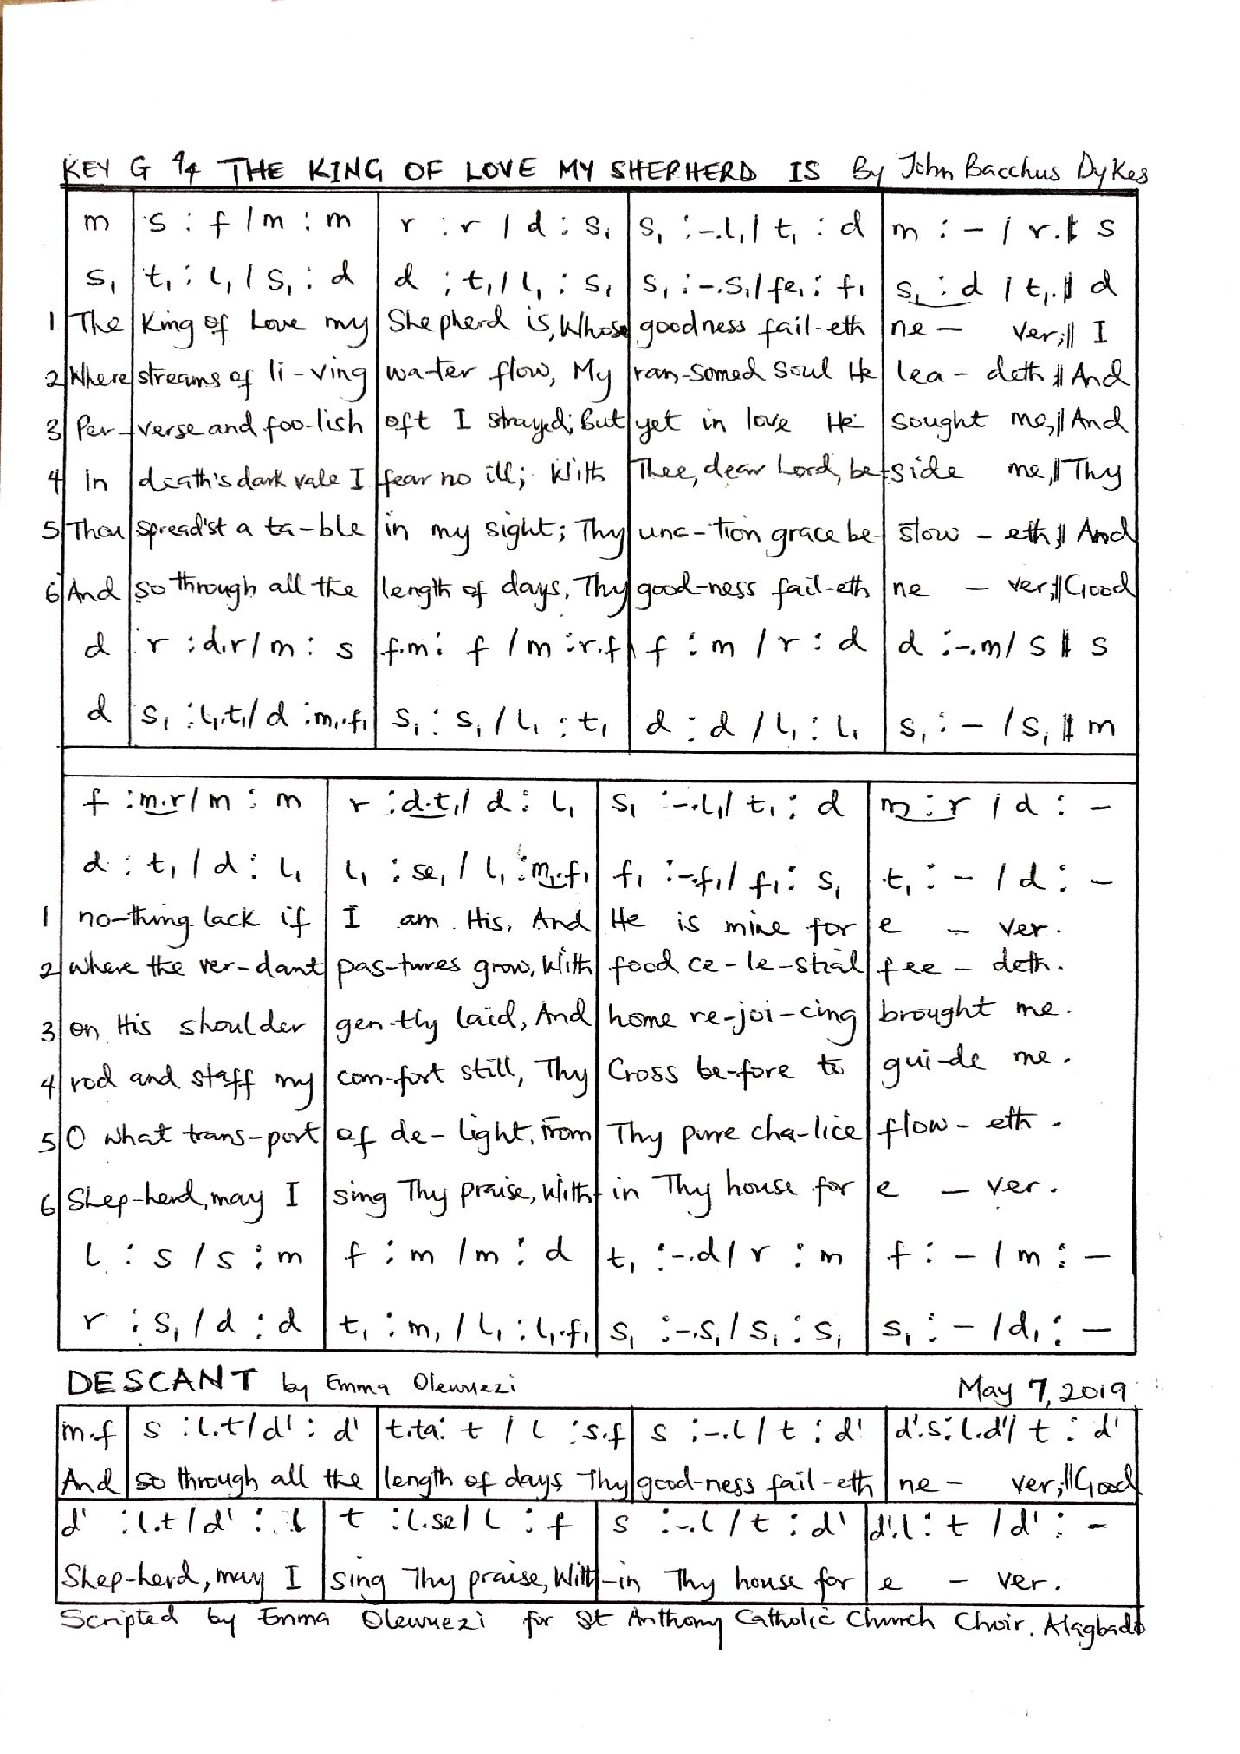 KEY G 4/4 THE KING OF LOVE MY SHEPHERD IS By John Bacchus Dykes
m | s : f / m : m | r : r / d : s₁ | s₁ :-.l₁/ t₁ : d | m : - / r.‖ s
s₁ | t₁ : l₁ / s₁ : d | d : t₁ / l₁ : s₁ | s₁ :-.s₁/fe₁ : f₁ | s₁ : d / t₁.‖ d
1 The | King of Love my | Shepherd is, Whose | goodness fail-eth | ne - ver;‖ I
2 Where | streams of li-ving | wa-ter flow, My | ran-somed Soul He | lea - deth ‖ And
3 Per- | verse and foo-lish | oft I strayed; But | yet in love He | sought me,‖ And
4 in | death's dark vale I | fear no ill; With | Thee, dear Lord, be- | side me,‖ Thy
5 Thou | spread'st a ta-ble | in my sight; Thy | unc-tion grace be- | stow - eth ‖ And
6 And | so through all the | length of days, Thy | good-ness fail-eth | ne - ver;‖ Good
d | r : d.r / m : s | f.m : f / m : r.f | f : m / r : d | d :-.m/ s ‖ s
d | s₁ : l₁.t₁/ d : m₁.f₁ | s₁ : s₁ / l₁ : t₁ | d : d / l₁ : l₁ | s₁ : - / s₁ ‖ m
f : m.r / m : m | r : d.t₁/ d : l₁ | s₁ :-.l₁/ t₁ : d | m : r / d : -
d : t₁ / d : l₁ | l₁ : se₁ / l₁ : m₁.f₁ | f₁ :-.f₁/ f₁ : s₁ | t₁ : - / d : -
1 no-thing lack if | I am His, And | He is mine for | e - ver.
2 where the ver-dant | pas-tures grow, With | food ce-le-stial | fee - deth.
3 on His shoulder | gen-tly laid, And | home re-joi-cing | brought me.
4 rod and staff my | com-fort still, Thy | Cross be-fore to | gui-de me.
5 O what trans-port | of de-light, from | Thy pure cha-lice | flow - eth.
6 Shep-herd, may I | sing Thy praise, With- | in Thy house for | e - ver.
l : s / s : m | f : m / m : d | t₁ :-.d / r : m | f : - / m : -
r : s₁ / d : d | t₁ : m₁ / l₁ : l₁.f₁ | s₁ :-.s₁ / s₁ : s₁ | s₁ : - / d₁ : -
DESCANT by Emma Olewuezi May 7, 2019
m.f | s : l.t / d' : d' | t.ta : t / l : s.f | s :-.l / t : d' | d'.s : l.d'/ t : d'
And | so through all the | length of days Thy | good-ness fail-eth | ne - ver;‖ Good
d' : l.t / d' : l | t : l.se / l : f | s :-.l / t : d' | d'.l : t / d' : -
Shep-herd, may I | sing Thy praise, With | -in Thy house for | e - ver.
Scripted by Emma Olewuezi for St Anthony Catholic Church Choir, Alagbado